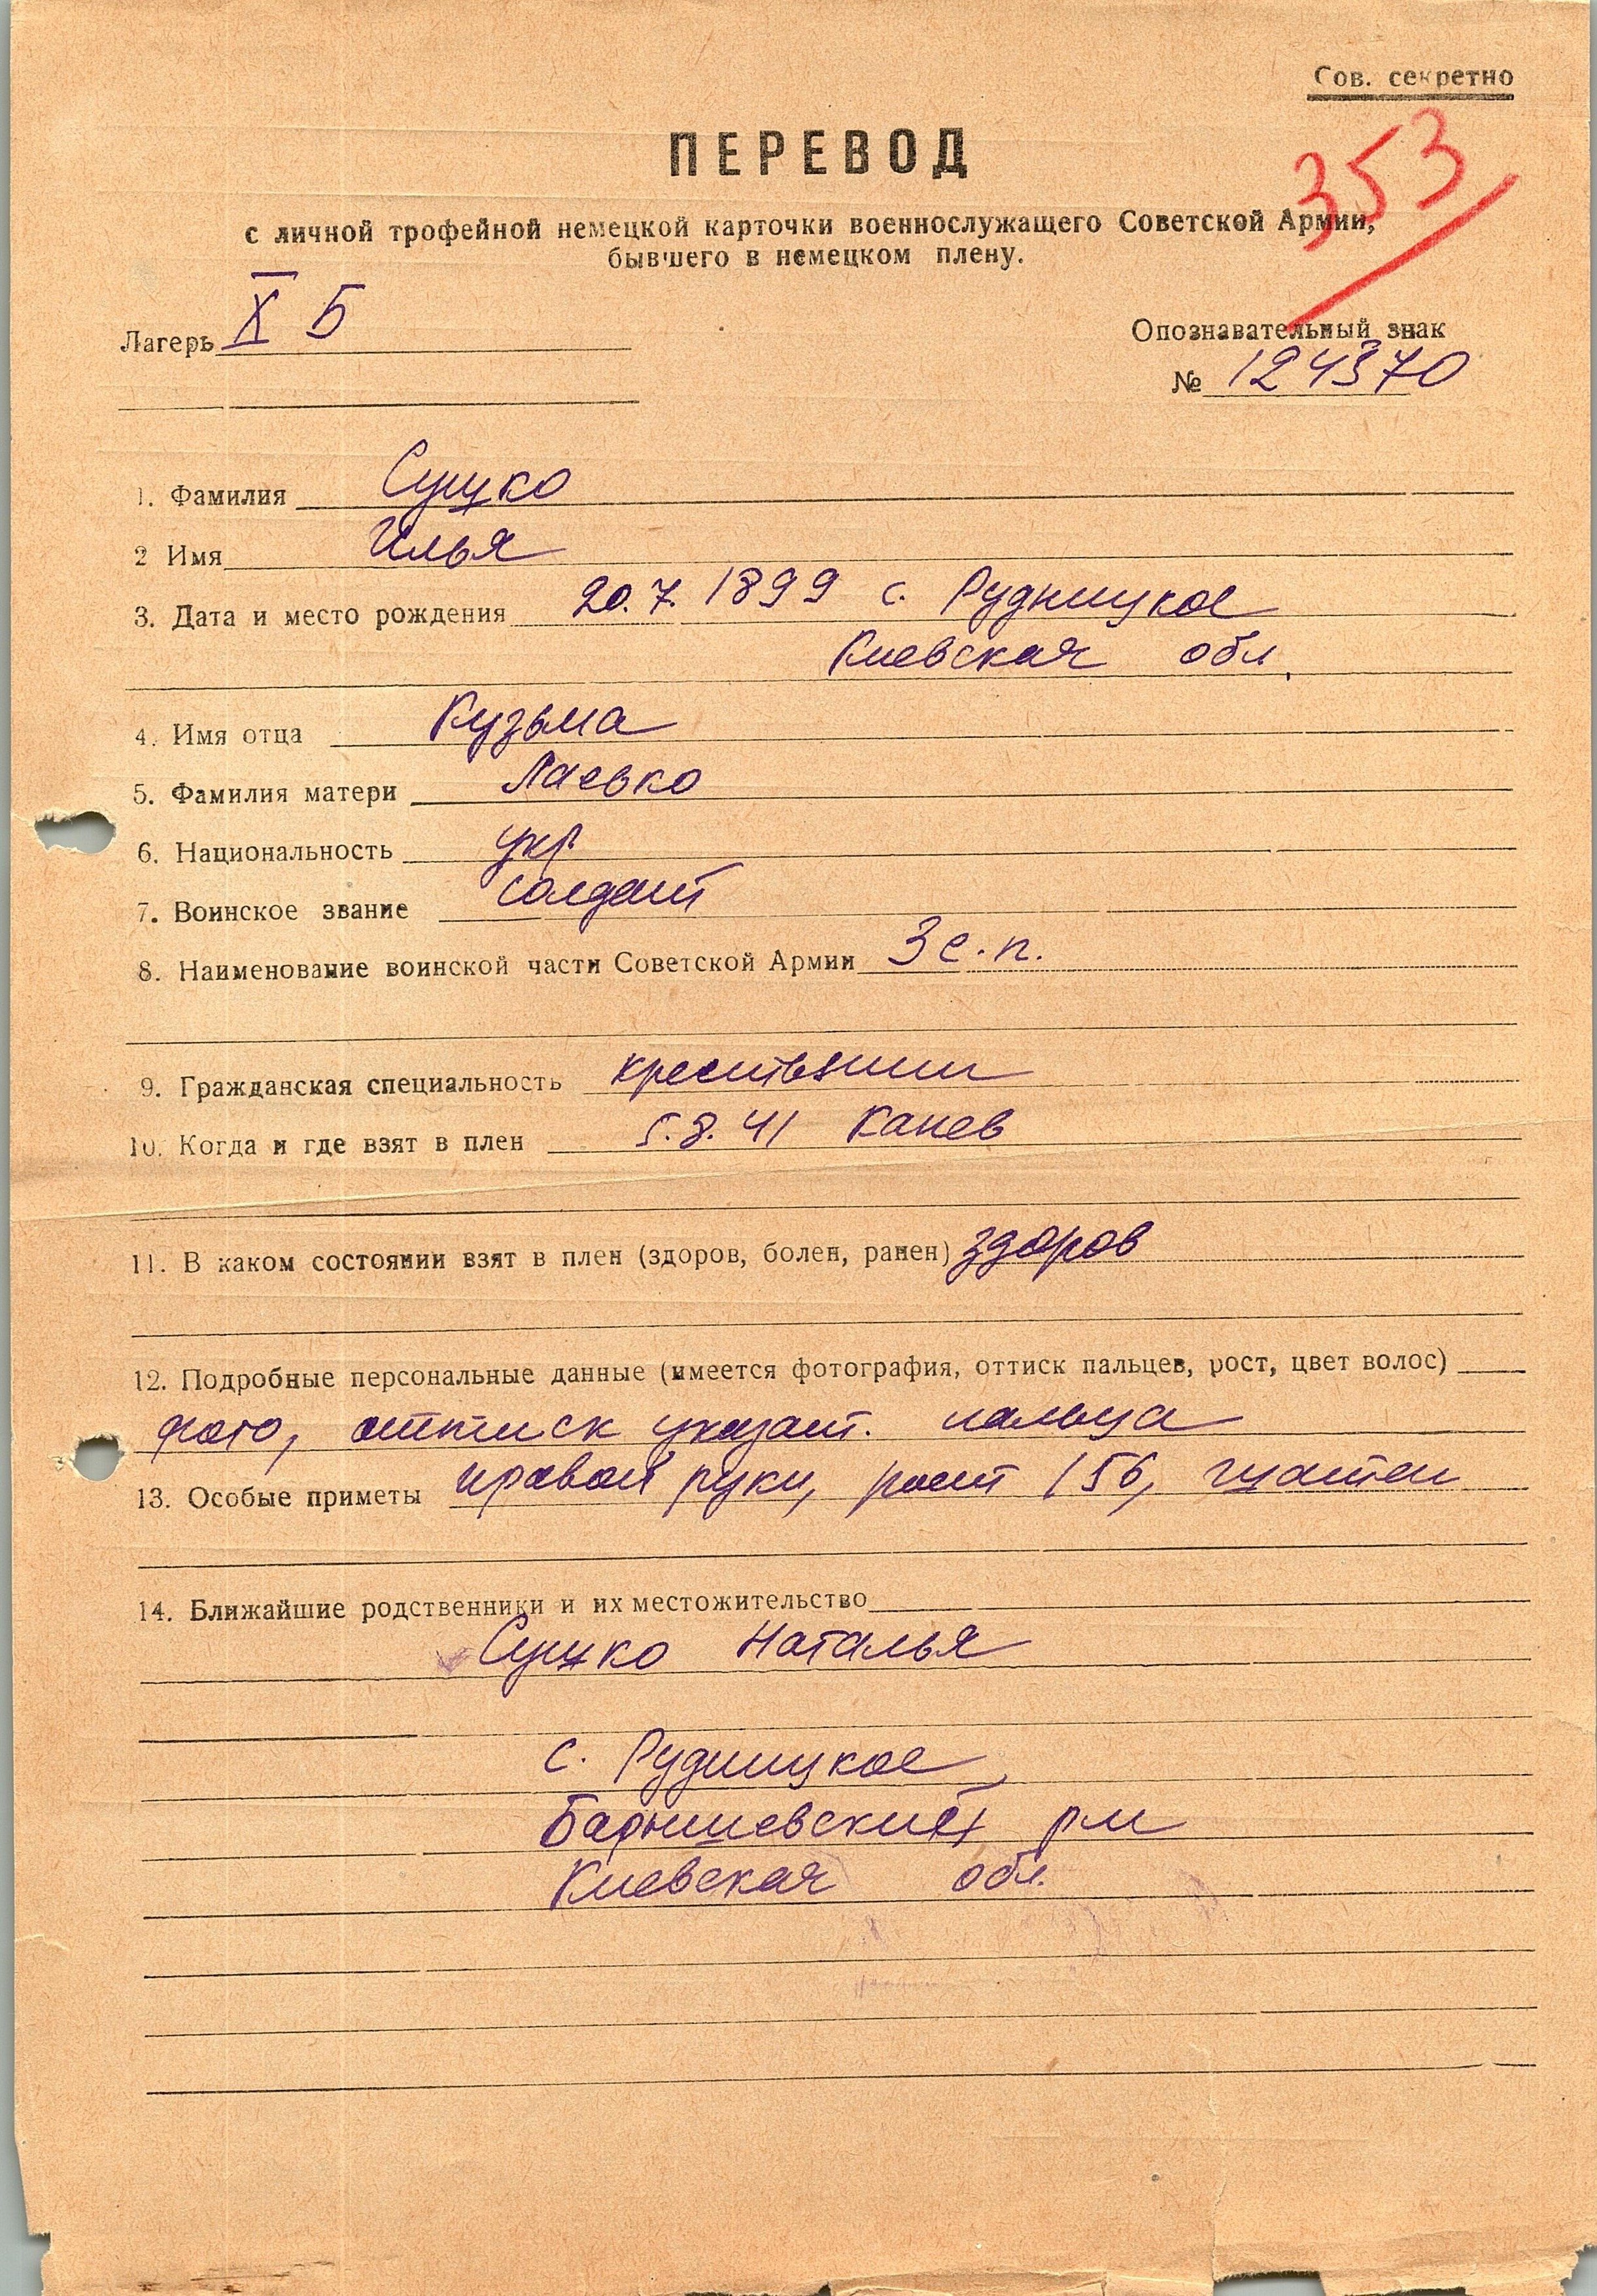 Сов. секретно
353
ПЕРЕВОД
с личной трофейной немецкой карточки военнослужащего Советской Армии,
бывшего в немецком плену.
Лагерь X Б
Опознавательный знак
№ 124370
1. Фамилия Сушко
2 Имя Илья
3. Дата и место рождения 20.7.1899 с. Рудницкое
Киевская обл.
4. Имя отца Кузьма
5. Фамилия матери Лаевко
6. Национальность укр
7. Воинское звание солдат
8. Наименование воинской части Советской Армии 3 с.п.
9. Гражданская специальность крестьянин
10. Когда и где взят в плен 5.8.41 Канев
11. В каком состоянии взят в плен (здоров, болен, ранен) здоров
12. Подробные персональные данные (имеется фотография, оттиск пальцев, рост, цвет волос)
фото, оттиск указат. пальца
13. Особые приметы правой руки, рост 156, шатен
14. Ближайшие родственники и их местожительство
Сушко Наталья
с. Рудницкое
Барышевский
Киевская обл.